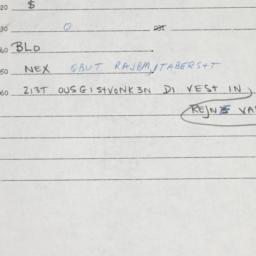 20 $
30 O
40 BLO
50 NEX OBUT RAJBM, TABERS+T
60 213T OUSG1S+VONK3N DI VEST IN
REJN VA